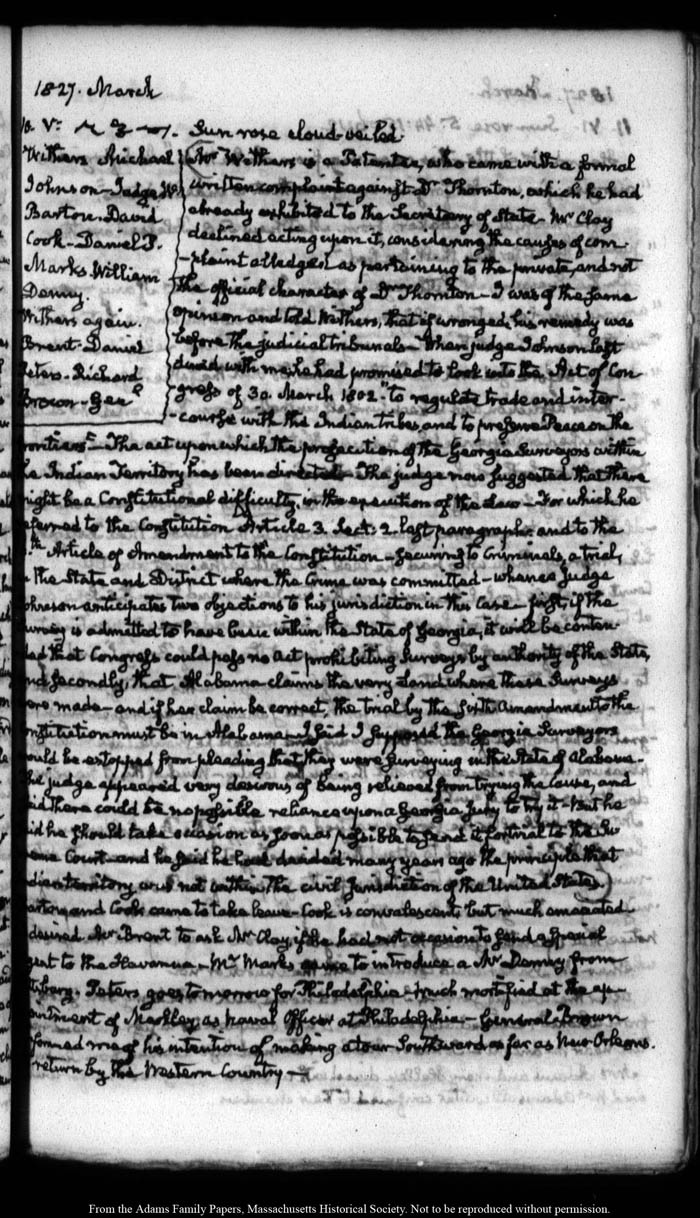 1827. March
V: Sun rose cloud-veiled.
Withers Michael
Johnson-Judge W.
Barton-David
Cook-Daniel P.
Marks. William
Denny.
Withers again.
Brent-Daniel
Peters-Richard
Brown-Genl
Mr Withers is a Patentee, who came with a formal
written complaint against Dr Thornton, which he had
already exhibited to the Secretary of State- Mr Clay
declined acting upon it, considering the causes of com-
-plaint alledged as pertaining to the private, and not
the official character of Dr Thornton- I was of the same
opinion and told Withers, that if wronged, his remedy was
before the judicial tribunals- When judge Johnson last
dined with me, he had promised to look into the Act of Con-
gress of 30. March 1802 "to regulate trade and inter-
-course with the Indian tribes, and to preserve Peace on the
rontiers"- The act upon which the prosecution of the Georgia Surveyors within
he Indian Territory has been directed- The judge now suggested that there
might be a Constitutional difficulty, in the execution of the Law- For which he
eferred to the Constitution Article 3. Sect: 2. last paragraph. and to the
th Article of Amendment to the Constitution- securing to Criminals, a trial,
the State and District where the Crime was committed- whence Judge
ohnson anticipates two objections to his jurisdiction in this Case- first, if the
urvey is admitted to have been within the State of Georgia, it will be conten-
ded that Congress could pass no act prohibiting Surveys by authority of the State,
nd secondly, that Alabama claims the very Land where these Surveys
ere made- and if her claim be correct, the trial by the sixth Amendment to the
onstitution must be in Alabama- I said I supposed the Georgia Surveyors
ould be estopped from pleading that they were surveying in the State of Alabama-
he judge appeared very desirous of being relieved from trying the Cause, and
id there could be no possible reliance upon a Georgia Jury to try it- But he
id he should take occasion as soon as possible to send it for trial to the Su
eme Court- and he said he had decided many years ago the principle that
ndian territory was not within the civil Jurisdiction of the United States.
arton, and Cook came to take leave- Cook is convalescent but much emaciated
desired Mr Brent to ask Mr Clay, if he had not occasion to send a special
gent to the Havanna- Mr Marks came to introduce a Mr Denny from
ttsburg. Peters goes to morrow for Philadelphia- much mortified at the ap-
ointment of Markley as Naval Officer at Philadelphia- General Brown
formed me of his intention of making a tour Southward as far as New-Orleans.
return by the Western Country-
From the Adams Family Papers, Massachusetts Historical Society. Not to be reproduced without permission.